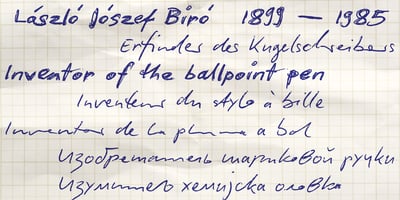 László József Bíró 1899 — 1985
Erfinder des Kugelschreibers
Inventor of the ballpoint pen
Inventeur du stylo à bille
Inventor de la pluma a bol
Изобретатель шариковой ручки
Изумитель хемијска оловка